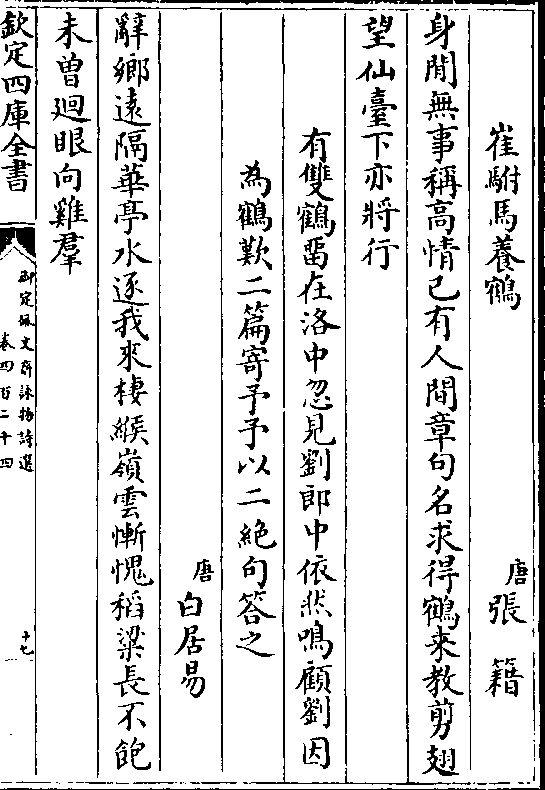 崔駙馬養鶴
唐張籍
身閒無事稱高情已有人間章句名求得鶴来教剪翅
望仙臺下亦將行
有雙鶴留在洛中忽見劉郎中依然鳴顧劉因
為鶴歎二篇寄予予以二絶句答之
唐白居易
辭鄉遠隔華亭水逐我來棲緱嶺雲慚愧稻粱長不飽
未曾廻眼向雞羣
欽定四庫全書
御定佩文齋詠物詩選
卷四百二十四
十七